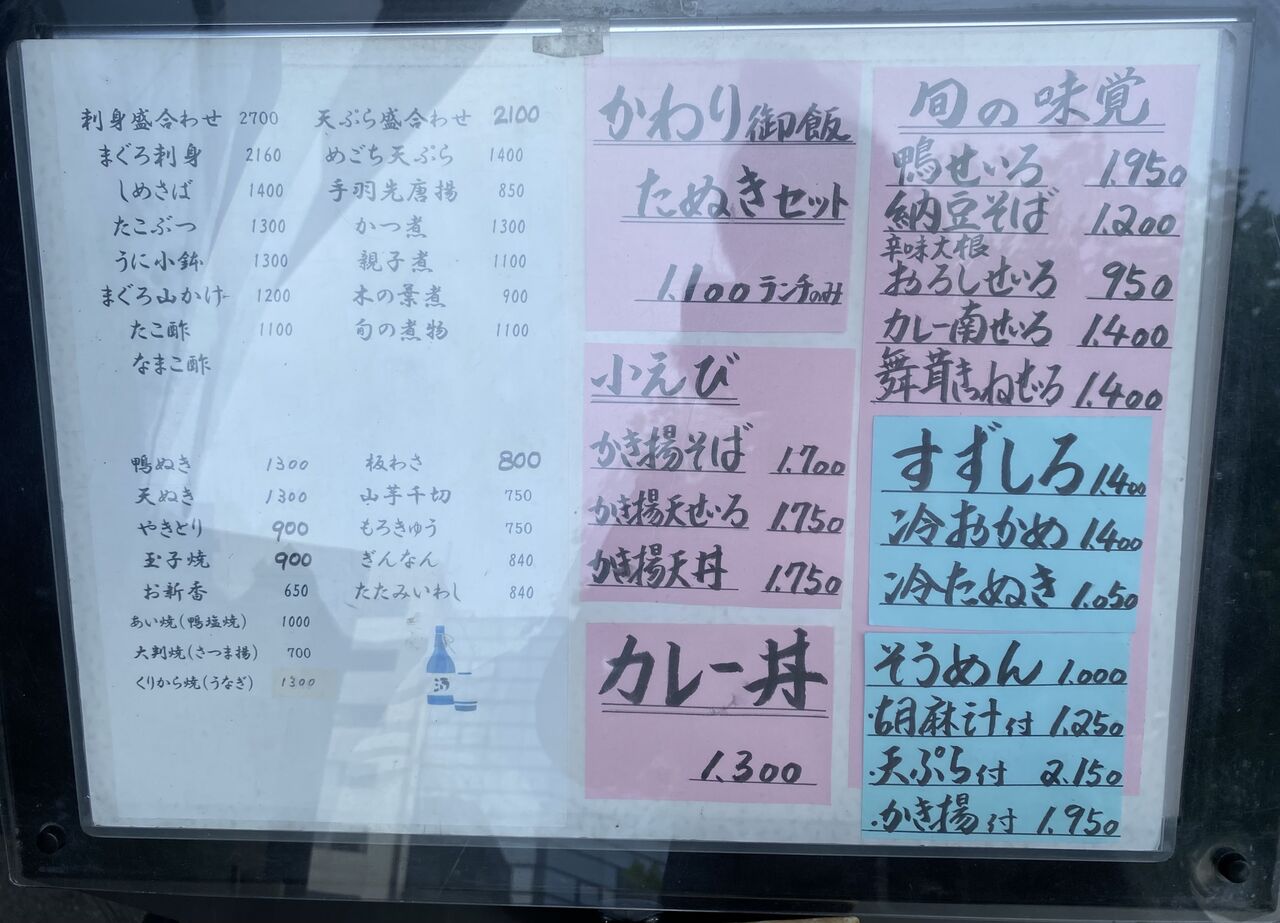 刺身盛合わせ 2700
まぐろ刺身 2160
しめさば 1400
たこぶつ 1300
うに小鉢 1300
まぐろ山かけ 1200
たこ酢 1100
なまこ酢
天ぷら盛合わせ 2100
めごち天ぷら 1400
手羽先唐揚 850
かつ煮 1300
親子煮 1100
木の葉煮 900
旬の煮物 1100
鴨ぬき 1300
天ぬき 1300
やきとり 900
玉子焼 900
お新香 650
あい焼(鴨塩焼) 1000
大判焼(さつま揚) 700
くりから焼(うなぎ) 1300
板わさ 800
山芋千切 750
もろきゅう 750
ぎんなん 840
たたみいわし 840
酒
かわり御飯
たぬきセット
1.100 ランチのみ
小えび
かき揚そば 1.700
かき揚天せいろ 1.750
かき揚天丼 1.750
カレー丼
1.300
旬の味覚
鴨せいろ 1.950
納豆そば 1.200
辛味大根
おろしせいろ 950
カレー南せいろ 1.400
舞茸きつねせいろ 1.400
すずしろ 1.400
冷おかめ 1.400
冷たぬき 1.050
そうめん 1.000
・胡麻汁付 1.250
・天ぷら付 2.150
・かき揚付 1.950